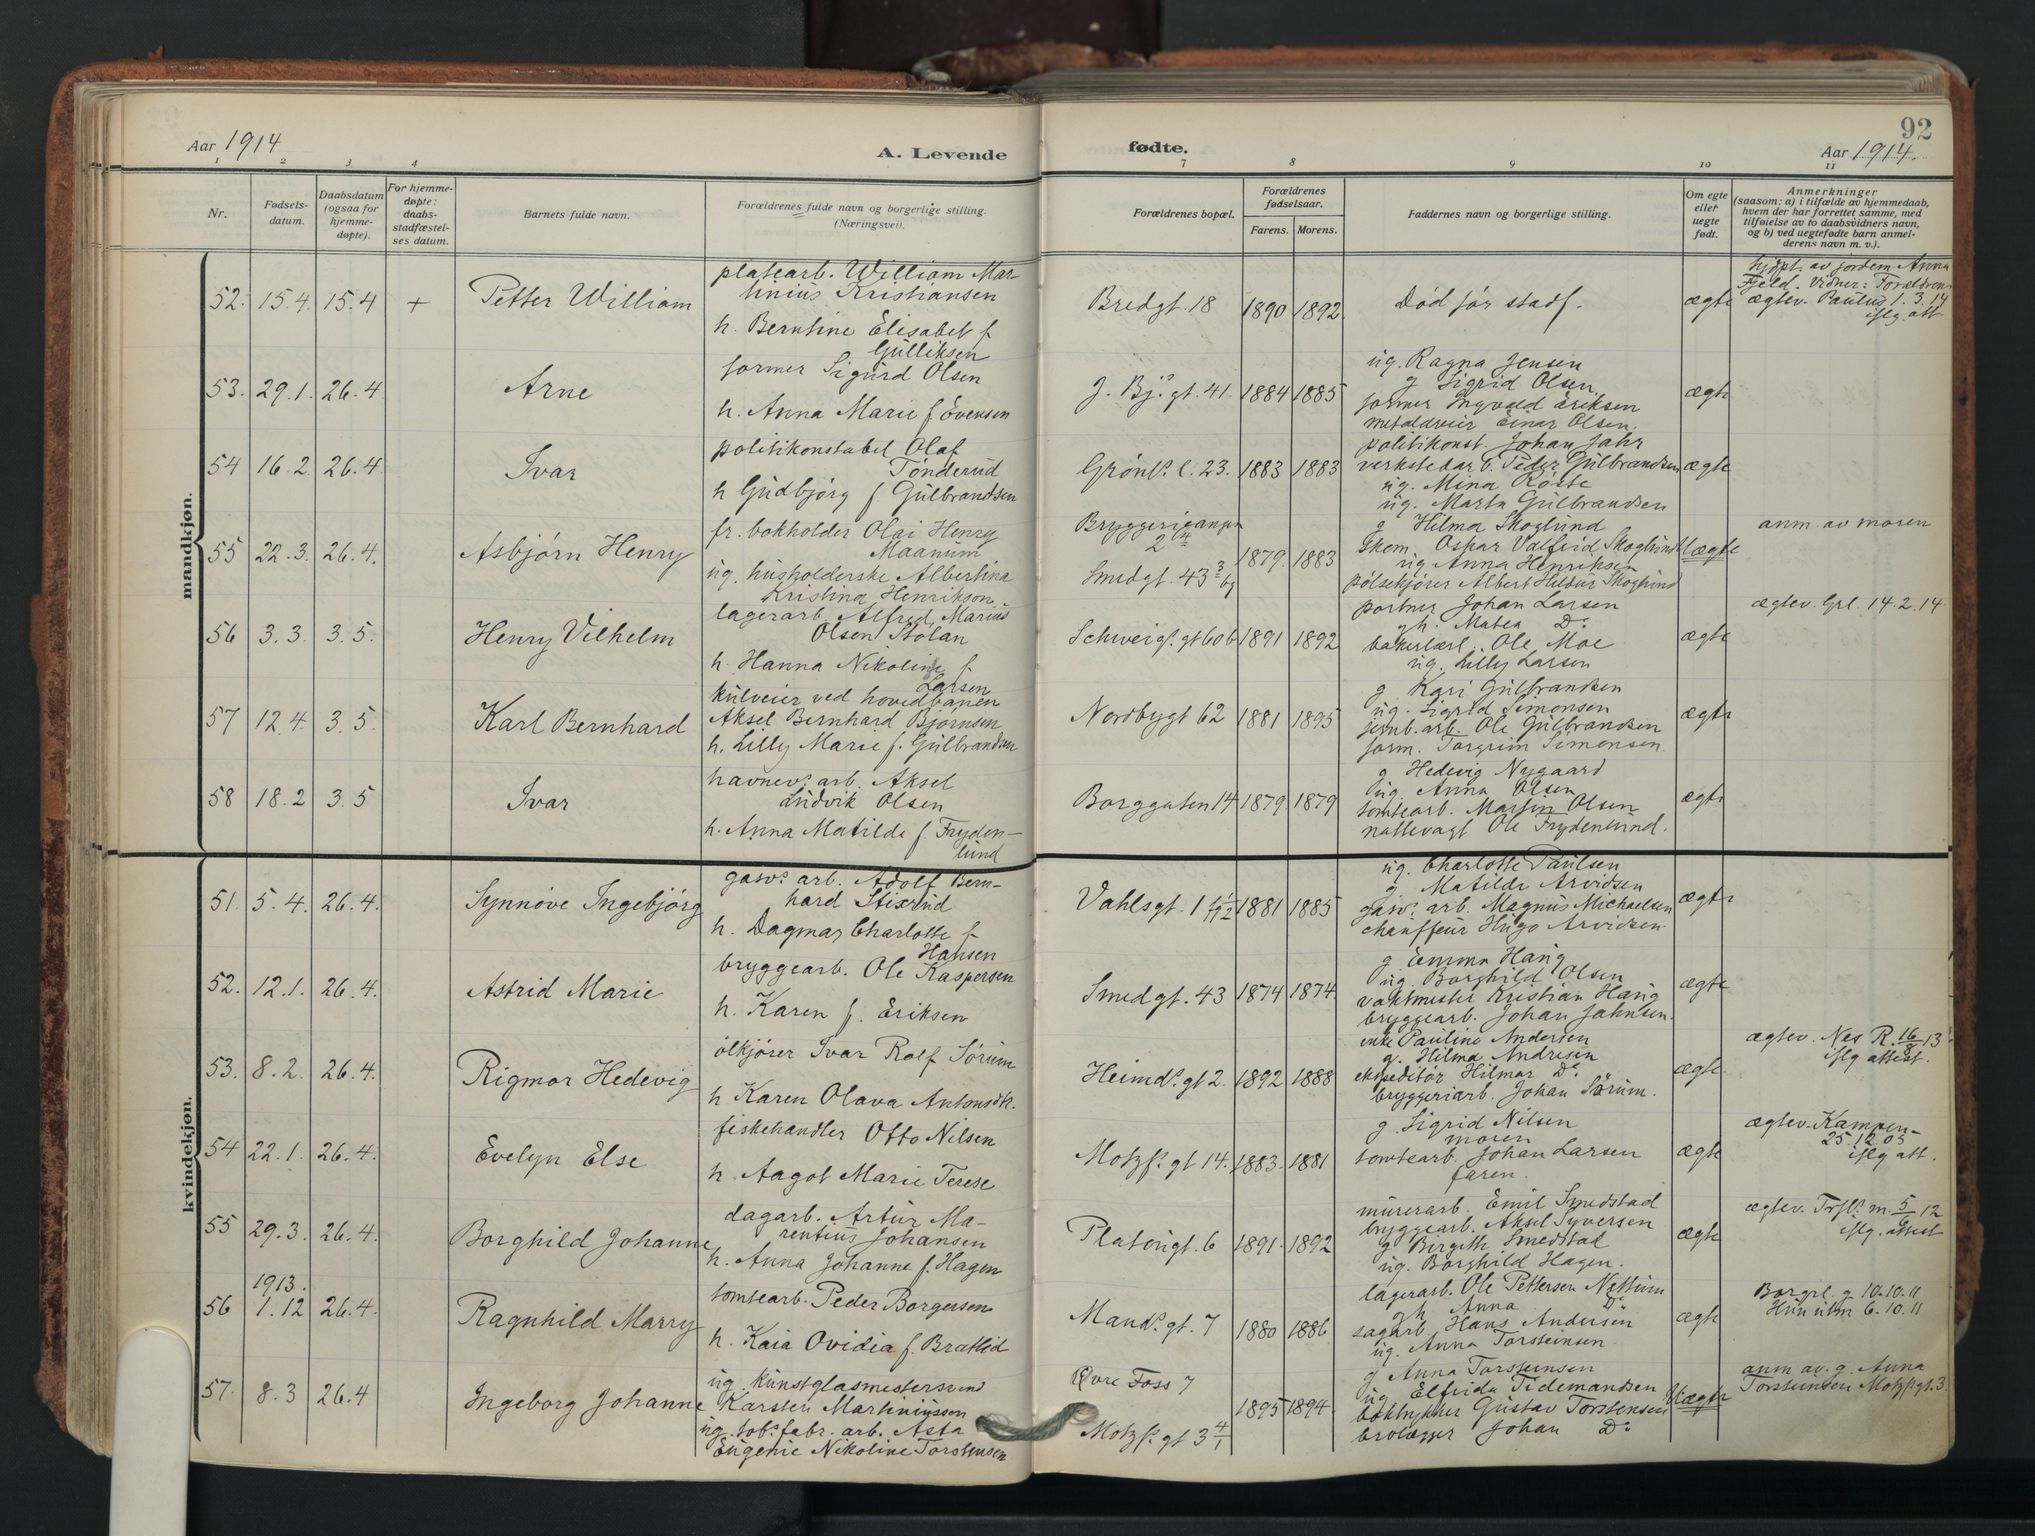 92
Aar 1914
A. Levende
fødte.
Aar 1914.
1 2 3 4 7 8 9 10 11
Nr.
Fødsels-
datum.
Daabsdatum
(ogsaa for
hjemme-
døpte).
For hjemme-
døpte:
daabs-
stadfæstel-
ses datum.
Barnets fulde navn.
Forældrenes fulde navn og borgerlige stilling.
(Næringsvei).
Forældrenes bopæl.
Forældrenes
fødselsaar.
Farens. Morens.
Faddernes navn og borgerlige stilling.
Om egte
eller
uegte
født.
Anmerkninger
(saasom: a) i tilfælde av hjemmedaab,
hvem der har forrettet samme, med
tilføielse av to daabsvidners navn,
og b) ved uegtefødte barn anmel-
derens navn m. v.).
mandkjøn.
52. 15.4. 15.4 + Petter William
platearb. William Mar-
tinius Kristiansen
h. Berntine Elisabet f.
Gulliksen
Bredgt. 18 1890 1892. Død før stadf. ægte
hjdpt. av jordem. Anna
Fjeld. Vidner: Forældrene
ægtev. Paulus 1.3.14
iflg. att
53. 29.1. 26.4 Arne
former Sigurd Olsen
h. Anna Marie f. Evensen
J. Bj.s gt. 41. 1884 1885
ug. Ragna Jensen
g. Sigrid Olsen
former Ingvald Eriksen
metaldreier Einar Olsen.
ægte
54 16.2. 26.4. Ivar
politikonstabel Olaf
Tønderud
h Gudbjørg f. Gulbrandsen
Grønl. l. 23. 1883 1883
politikonst. Johan Jahr
verkstedarb. Peder Gulbrandsen
ug. Mina Røste
ug. Marta Gulbrandsen
ægte
55 22.3. 26.4. Asbjørn Henry
fr. bokholder Olai Henry
Maanum
ug. husholderske Albertina
Kristina Henrikson
Bryggerigangen
2
Smedgt. 43
1879. 1883
g Hilma Skoglund
Oskar Valfrid Skoglund
ug Anna Henriksen
pølsekjører Albert Hildur Skoglund
uægte
anm. av moren
56 3.3. 3.5. Henry Vilhelm
lagerarb. Alfred Marius
Olsen Stolan
h. Hanna Nikoline f.
Larsen
Schweig. gt 60b 1891 1892
portner Johan Larsen
gh. Matea Do
bakerlærl. Ole Moe
ug. Lilly Larsen
ægte
ægtev. Grl. 14.2.14
57 12.4. 3.5. Karl Bernhard
kulveier ved hovedbanen
Aksel Bernhard Bjørnsen
h. Lilly Marie f. Gulbrandsen
Nordbygt 62 1881 1895
g Kari Gulbrandsen
ug. Sigrid Simonsen
jernb. arb. Ole Gulbrandsen
form. Torgrim Simonsen.
ægte
58 18.2 3.5 Ivar
havnev. arb. Aksel
Ludvik Olsen
h. Anna Matilde f. Fryden-
lund
Borggaten 14 1879 1879
g Hedevig Nygaard
ug. Anna Olsen
tomtearb. Martin Olsen
nattevagt Ole Frydenlund.
ægte
kvindekjøn.
51. 5.4. 26.4. Synnøve Ingebjørg
gasv. arb. Adolf Bern-
hard Stixrud
h. Dagmar Charlotte f.
Hansen
Vahlsgt. 1 1881 1885
ug. Charlotte Paulsen
g. Matilde Arvidsen
gasv. arb. Magnus Michaelsen
chauffeur Hugo Arvidsen.
ægte
52. 12.1. 26.4. Astrid Marie
bryggearb. Ole Kaspersen
h. Karen f. Eriksen
Smedgt. 43 1874 1874.
g Emma Haug
ug. Borghild Olsen
vaktmester Kristian Haug
bryggearb. Johan Jahnsen.
ægte
53. 8.2. 26.4. Rigmor Hedevig
ølkjører Ivar Rolf Sørum
h Karen Olava Antonsdt.
Heimd. gt 2. 1892 1888
enke Pauline Andersen
g. Hilma Andresen
ekspeditør Hilmar Do
bryggeriarb. Johan Sørum.
ægte
ægtev. Nes R. 16/8 13
iflg attest.
54 22.1. 26.4. Evelyn Else
fiskehandler Otto Nilsen
h. Aagot Marie Terese
Motzf. gt 14. 1883. 1881
g. Sigrid Nilsen
moren
tomtearb. Johan Larsen
faren.
ægte
ægtev. Kampen
25.12.05
iflg att.
55 29.3. 26.4. Borghild Johanne
dagarb. Artur Ma-
rentius Johansen
h. Anna Johanne f. Hagen
Platougt. 6 1891. 1892
murerarb. Emil Smedstad
bryggearb. Aksel Syversen
g Birgith Smedstad
ug. Borghild Hagen.
ægte
iflg. attest
1913.
56 1.12 26.4. Ragnhild Marry
tomtearb. Peder Borgersen
h. Kaia Ovidia f. Bratlid
Mands. gt. 7 1880 1886
lagerarb. Ole Pettersen Nettum
gh Anna Do
sagarb Hans Andersen
ug. Anna Torsteinsen.
ægte
Borgrl. g 10.10.11
Hun utm 6.10.11
57. 8.3 26.4 Ingeborg Johanne
ug. kunstglasmestersvend
Karsten Martiniussen
ug. tob. fabr. arb. Asta
Eugenie Nikoline Torstensen
Øvre Foss 7
Motzf. gt 3 4/1
1895 1894.
g Anna Torsteinsen
ug Elfrida Tidemandsen
boktrykker Gustav Torstensen
brolægger Johan Do
uægte
anm av. g. Anna
Torsteinsen Motzf. gt. 3